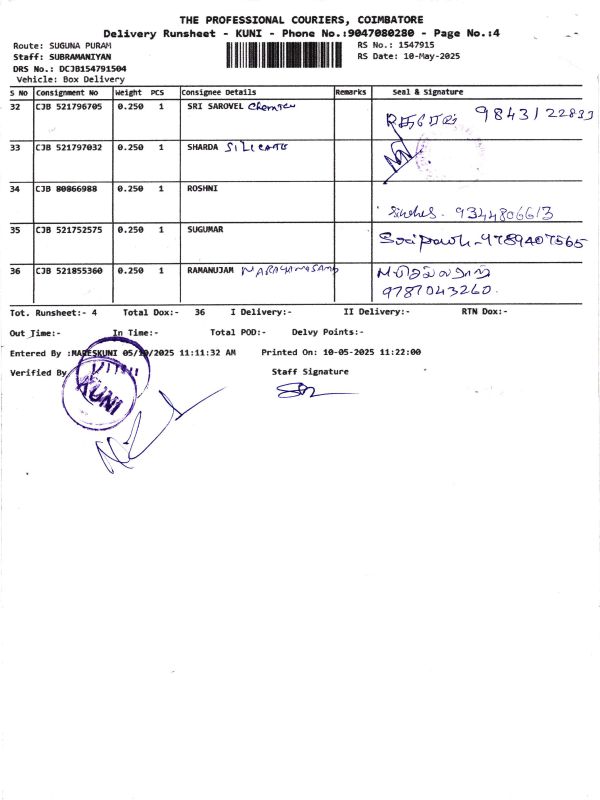 THE PROFESSIONAL COURIERS, COIMBATORE
Delivery Runsheet - KUNI - Phone No.:9047080280 - Page No.:4
Route: SUGUNA PURAM RS No.: 1547915
Staff: SUBRAMANIYAN RS Date: 10-May-2025
DRS No.: DCJB154791504
Vehicle: Box Delivery
S No Consignment No Weight PCS Consignee Details Remarks Seal & Signature
32 CJB 521796705 0.250 1 SRI SAROVEL
33 CJB 521797032 0.250 1 SHARDA
34 CJB 80866988 0.250 1 ROSHNI 9344806613
35 CJB 521752575 0.250 1 SUGUMAR 9789407565
36 CJB 521855360 0.250 1 RAMANUJAM
9787043260.
Tot. Runsheet:- 4 Total Dox:- 36 I Delivery:- II Delivery:- RTN Dox:-
Out Time:- In Time:- Total POD:- Delvy Points:-
Entered By :MARESKUNI 05/10/2025 11:11:32 AM Printed On: 10-05-2025 11:22:00
Verified By Staff Signature
KUNI